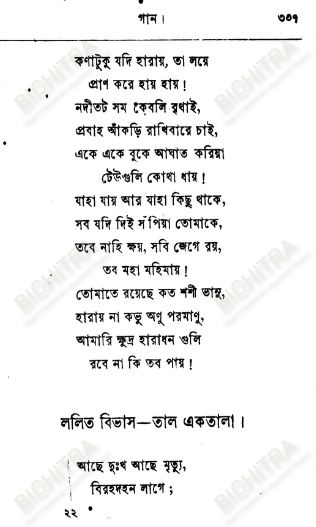 গান।
৩০৭
কণাটুকু যদি হারায়, তা লয়ে
প্রাণ করে হায় হায়!
নদীতট সম কেবলি বৃথাই,
প্রবাহ আঁকড়ি রাখিবারে চাই,
একে একে বুকে আঘাত করিয়া
ঢেউগুলি কোথা ধায়!
যাহা যায় আর যাহা কিছু থাকে,
সব যদি দিই সঁপিয়া তোমাকে,
তবে নাহি ক্ষয়, সবি জেগে রয়,
তব মহা মহিমায়!
তোমাতে রয়েছে কত শশী ভানু,
হারায় না কভু অণু পরমাণু,
আমারি ক্ষুদ্র হারাধন গুলি
রবে না কি তব পায়!
ললিত বিভাস—তাল একতালা।
আছে দুঃখ আছে মৃত্যু,
বিরহদহন লাগে;
২২
BICHITRA
BICHITRA
BICHITRA
BICHITRA
BICHITRA
BICHITRA